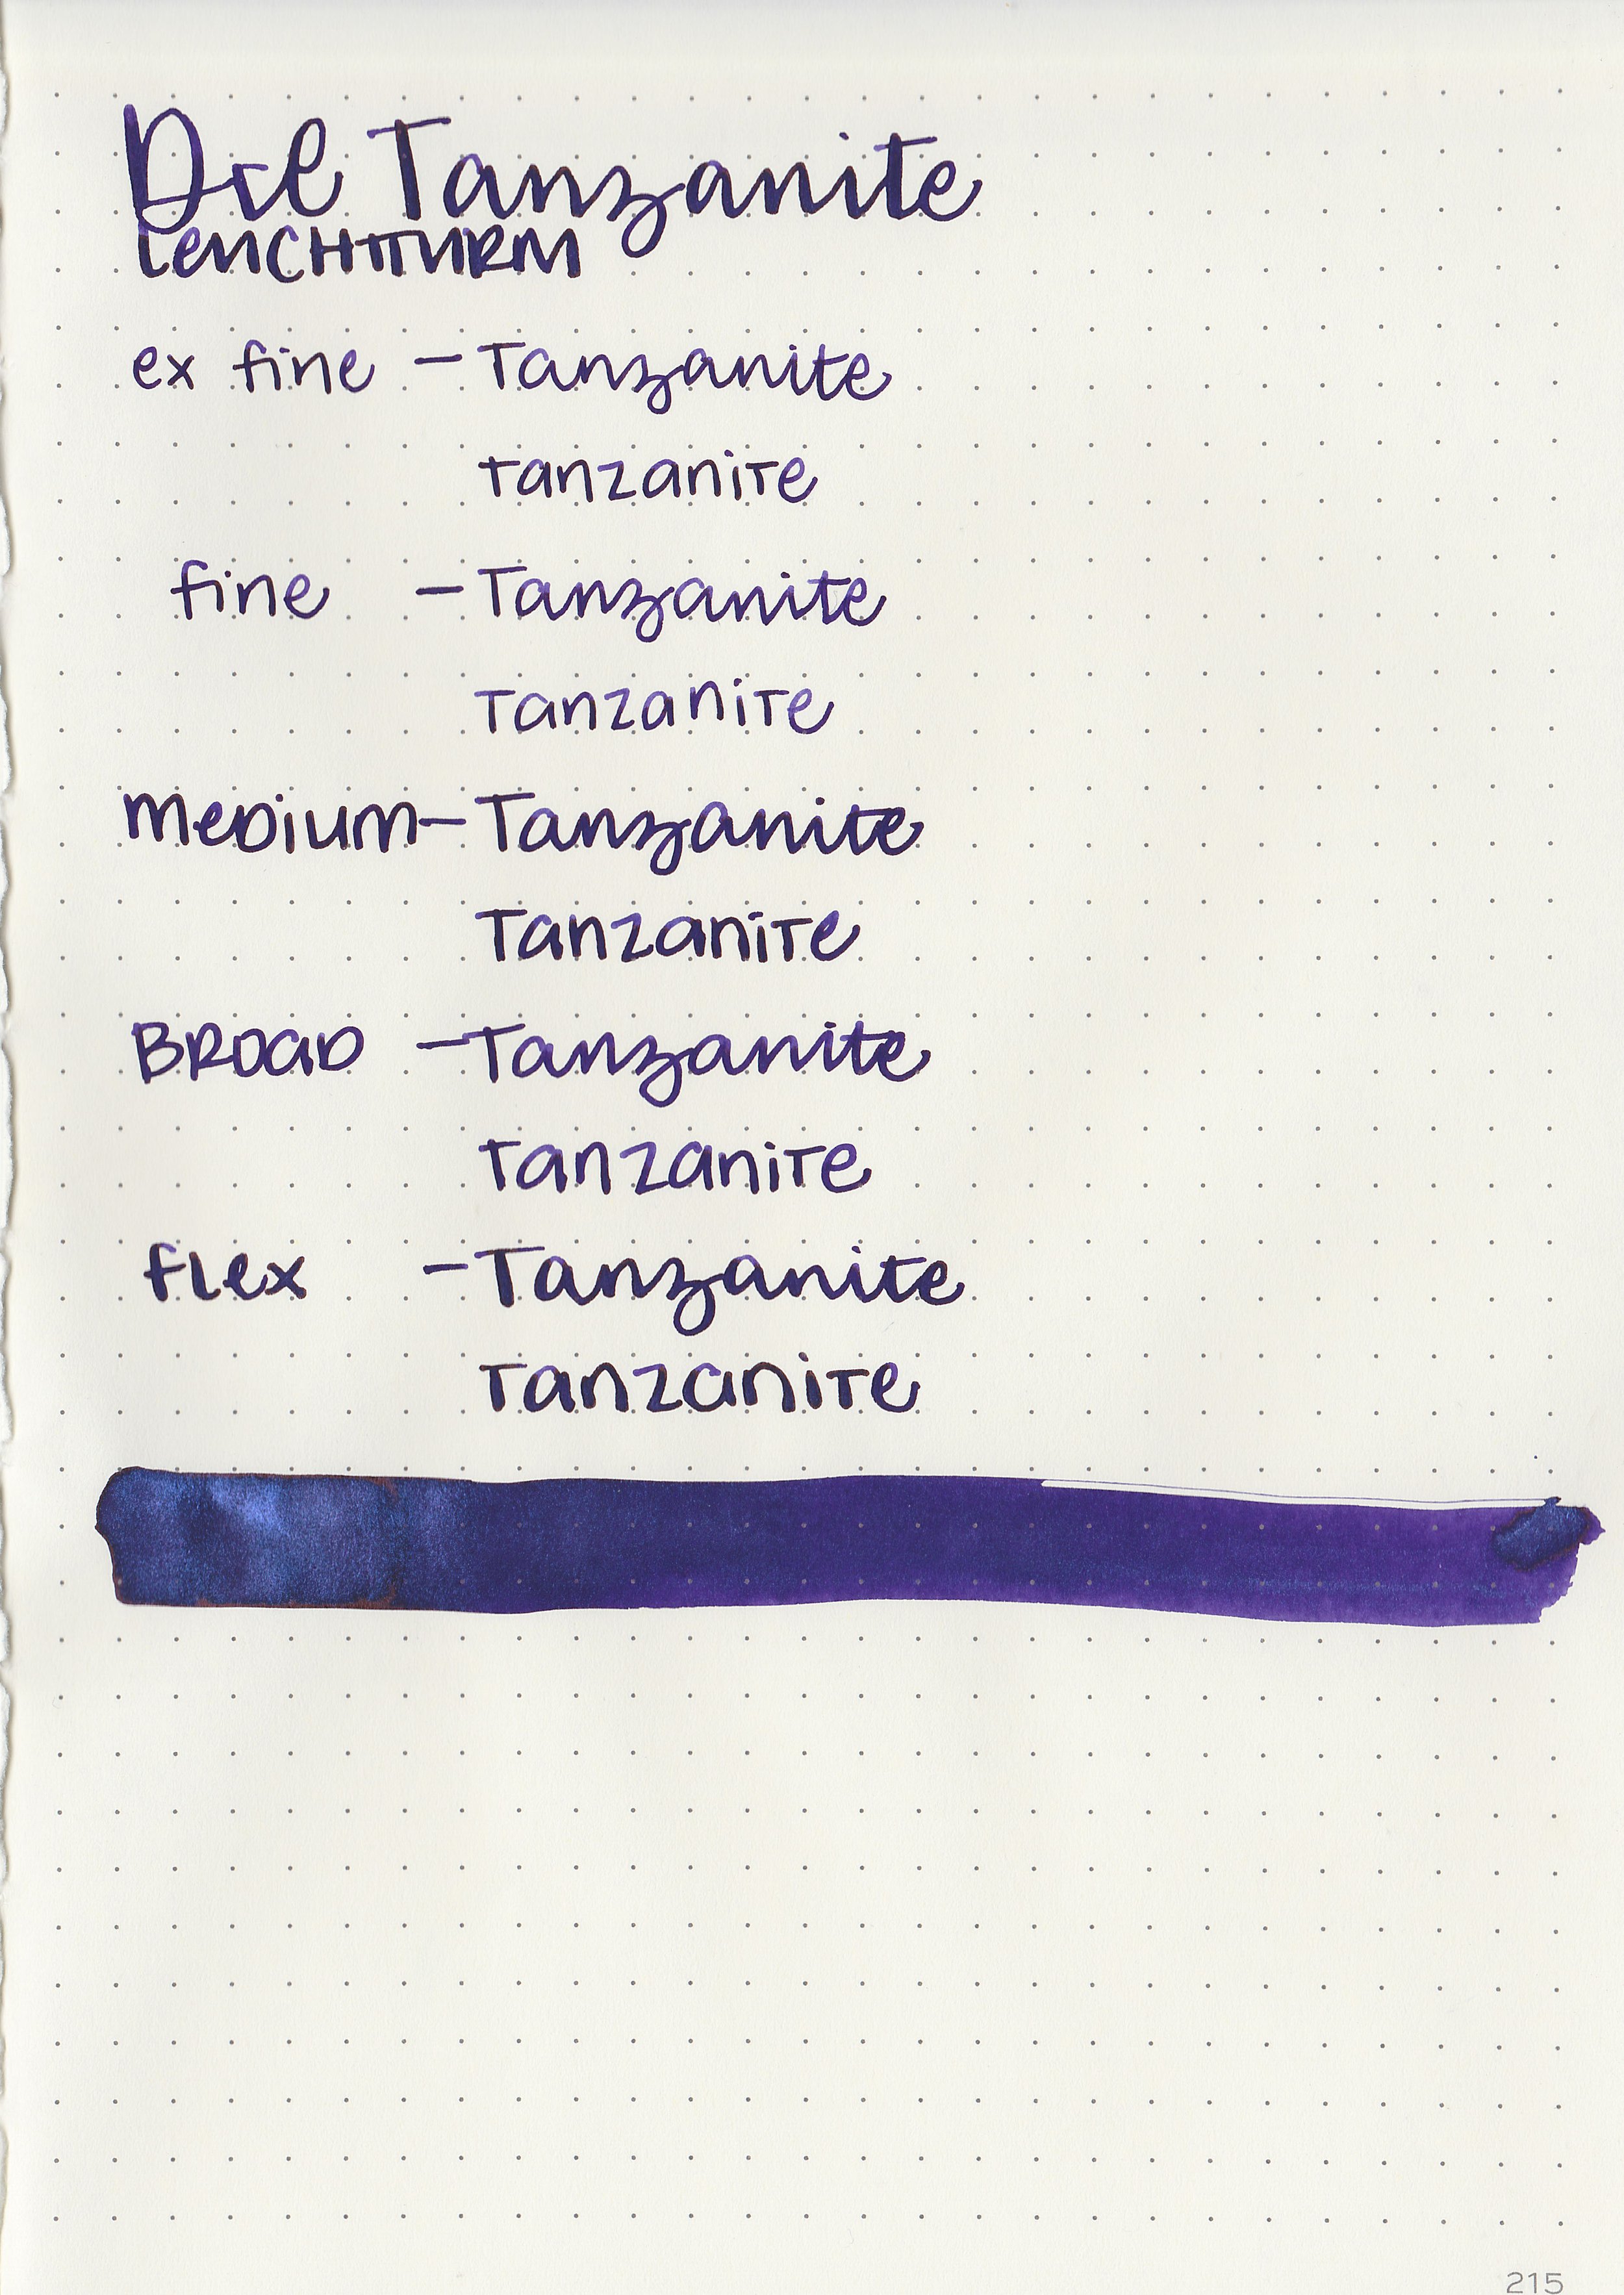 Tanzanite
LeUCHTTURM
ex fine – Tanzanite
Tanzanite
fine – Tanzanite
Tanzanite
Medium – Tanzanite
Tanzanite
BROAD – Tanzanite
Tanzanite
flex – Tanzanite
Tanzanite
215